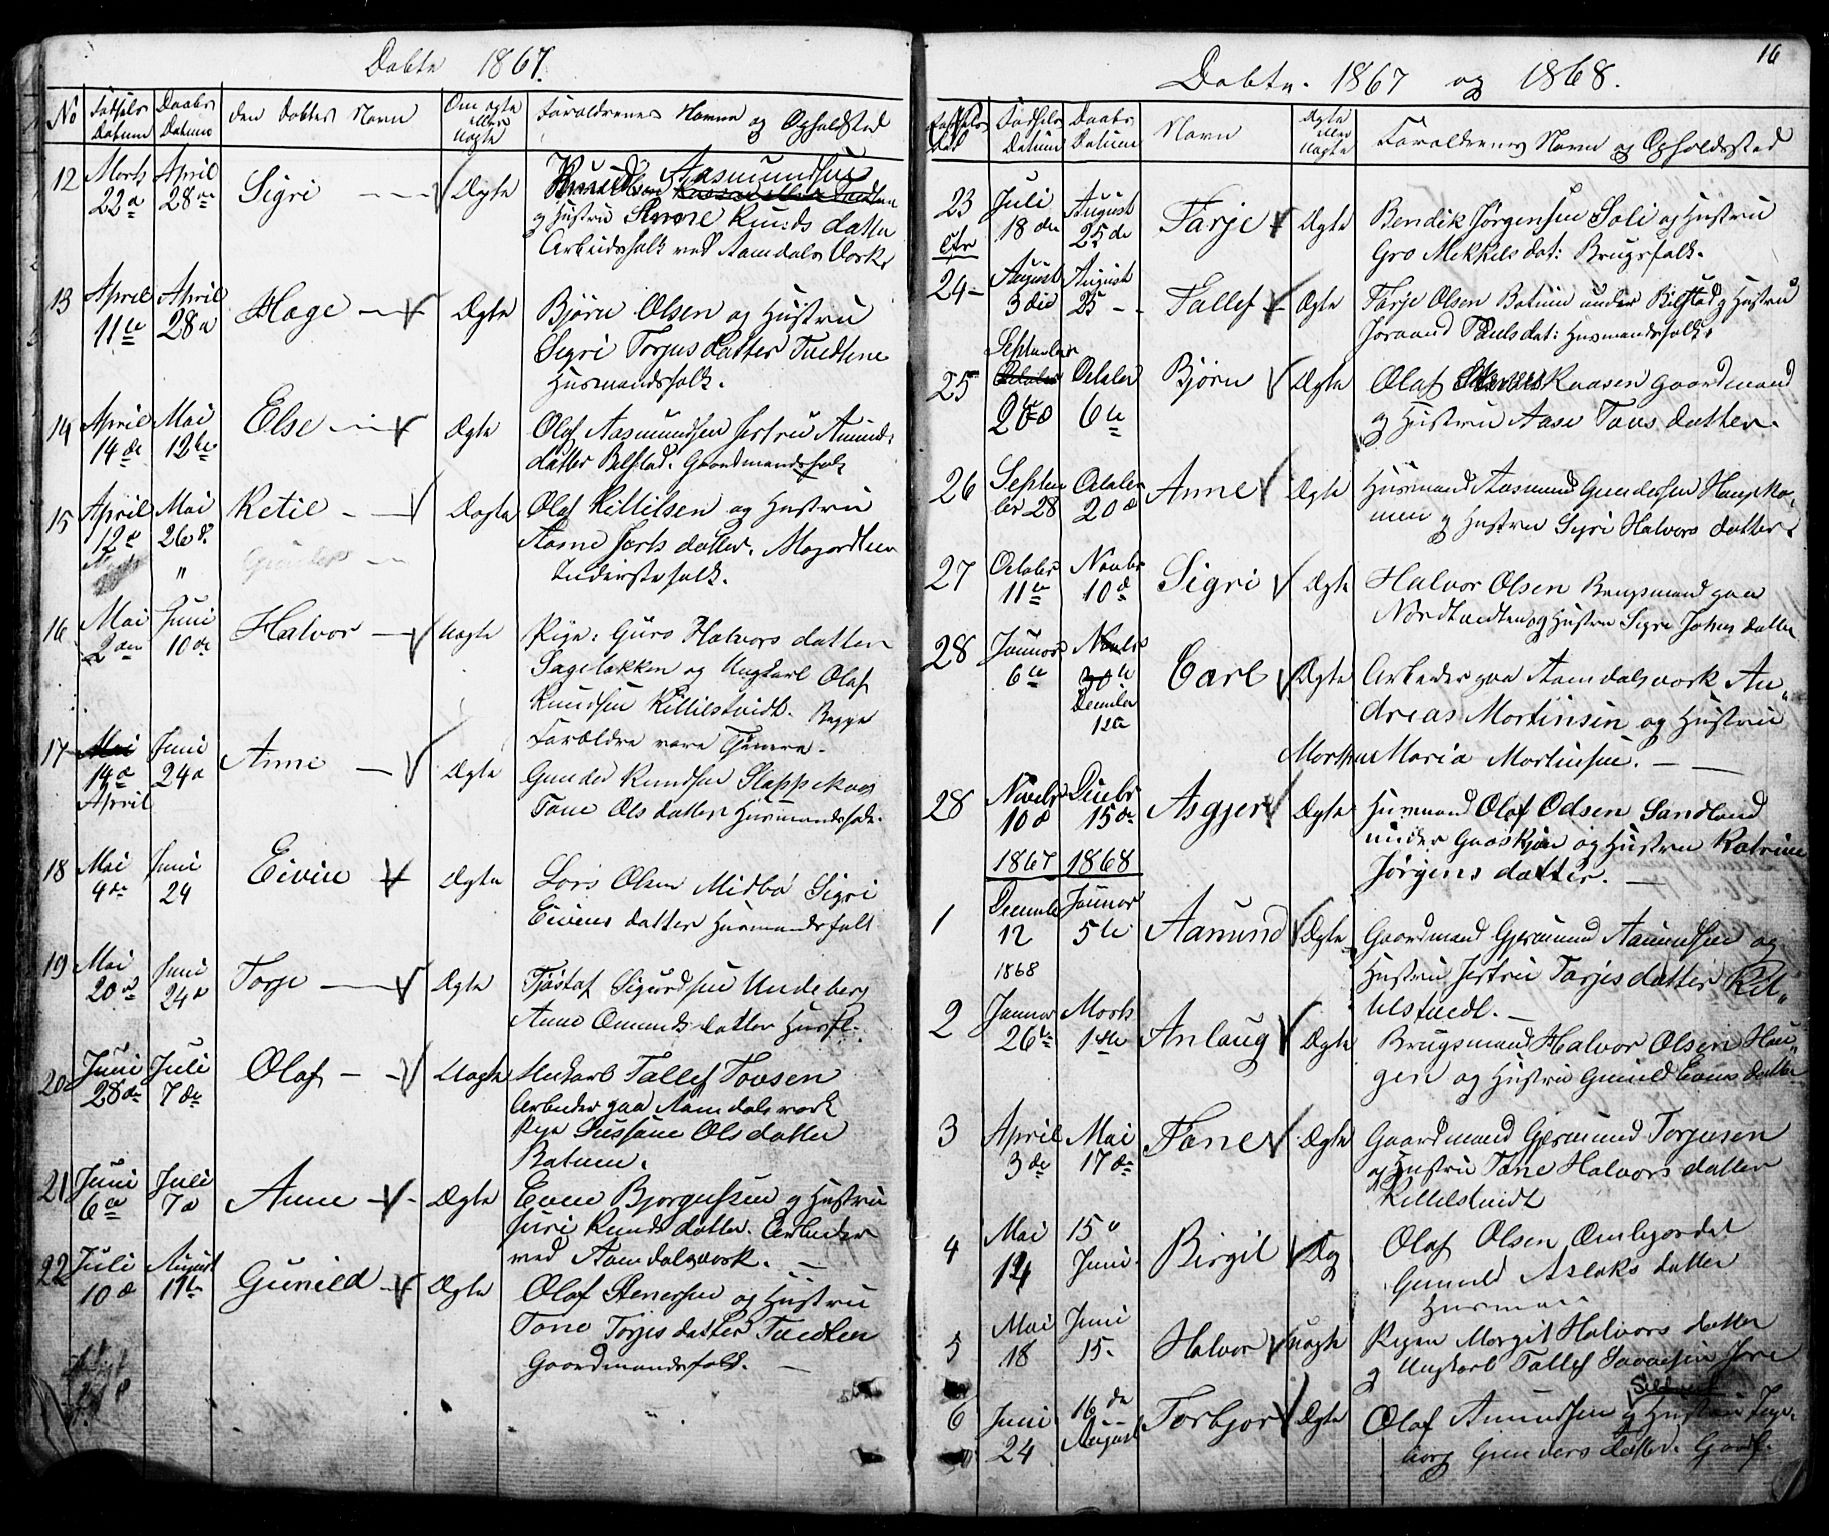 Døbte 1867.
No Fødsels Datum Daabs Datum den Døbtes Navn Om ægte eller uægte Forældrenes Navne og Opholdsted
12 Marts 22 April 28 Sigri Ægte Knud Aasmundsen
og Hustru Signe Knuds datter
Arbeidsfolk ved Aamdals Værk
13 April 11te April 28 Hage Ægte Bjørn Olsen og Hustru
Sigri Torjus datter Tvedtene
Husmandsfolk.
14 April 14de Mai 12te Else Ægte Olaf Aasmundsen Jertru Amunds
datter Bilstad. Gaardmandsfolk
15 April 12 Mai 26 Ketil Ægte Olaf Killilsen og Hustru
Aasne datter.
Inderstefolk.
16 Mai 2den Juni 10de Halvor Uægte Pige: Guro Halvors datter
og Ungkarl Olaf
Knudsen Killilstvidt. Begge
Forældre vare Tjenere.
17 14 April Juni 24 Anne Ægte Gunder Knudsen
Tone Ols datter Husmandsfolk.
18 Mai 4de Juni 24 Eivin Ægte Lars Olsen Midbø Sigri
Eivens datter Husmandsfolk
19 Mai 20 Juni 24 Torje Ægte Tjøstaf Sigurdsen Undeberg
Anne Omunds datter Husfl.
20 Juni 28de Juli 7de Olaf Uægte Ungkarl Tallef Tovsen
Arbeider paa Aamdals værk
Pige Sussane Ols datter
Botnen.
21 Juni 6te Juli 7 Anne Ægte Even Bjørgufsen og Hustru
Juri Knuds datter. Arbeider
ved Aamdalsværk.
22 Juli 10 August 11te Gunild Ægte Olaf Stenersen og Hustru
Tone Torjes datter Tvedten
Gaardmandsfolk.
16
Døbte. 1867 og 1868.
Fødsels Datum Daabs Datum Navn Ægte eller uægte Forældrenes Navn og Opholdssted
23 Juli 18de August 25de Tarje Ægte Bendik Jørgensen Soli og Hustru
Gro Mekkels dat: Brugsfolk.
24 August 3die August 25 Tallef Ægte Tarje Olsen Botnen under Bilstad og Hustru
Joraand Pauls dat: Husmandsfolk.
25 September 28 October 6te Bjørn Ægte Olaf Kaasen Gaardmand
og Hustru Aase Tovs datter.
26 September 28 October 20 Anne Ægte Husmand Aasmund Gundersen
og Hustru Sigri Halvors datter.
27 October 11te Novbr 10 Sigri Ægte Halvor Olsen Brugsmand paa
Nordtvedten og Hustru Sigri Johns datter
28 Januar 6te December 1ste Carl Ægte Arbeider paa Aamdalsværk An„
dreas Mortinsen og Hustru
Maria Mortinsen.
28 Novbr 10 Decbr 15de Asgjer Ægte Husmand Olaf Odsen Sandland
under Gaaskjøn og Hustru Katrine
Jørgens datter.
1867 1868
1 December 12 Januar 5te Aamund Ægte Gaardmand Gjermund Aamundsen og
Hustru Jertru Tarjes datter Kil„
lilstvedt.
1868
2 Januar 26 Marts 1ste Anlaug Ægte Brugsmand Halvor Olsen Hau„
gen og Hustru Gunild Evens datter
3 April 3de Mai 17de Tone Ægte Gaardmand Gjermund Torjusen
og Hustru Tone Halvors datter
Killilstvidt
4 Mai 14 15 Juni Birgit Æg Olaf Olsen
Gunild Aslaks datter
Husman
5 Mai 18 Juni 15. Halvor uægte Pigen Margit Halvors datter
og Ungkarl Tallef
6 Juni 24 16de August Torbjor Ægte Olaf Amundsen og Hustru Inge„
borg Gunders datter. Gaardf.